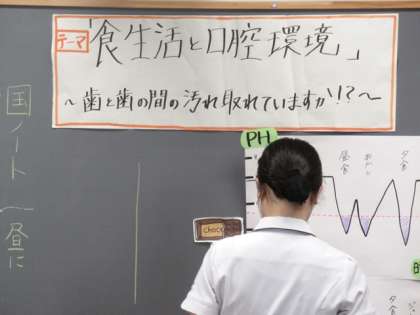 テーマ
「食生活と口腔環境」
～歯と歯の間の汚れ取れていますか!?～
国ノート
昼に
PH
昼食
おやつ
夕食
choco